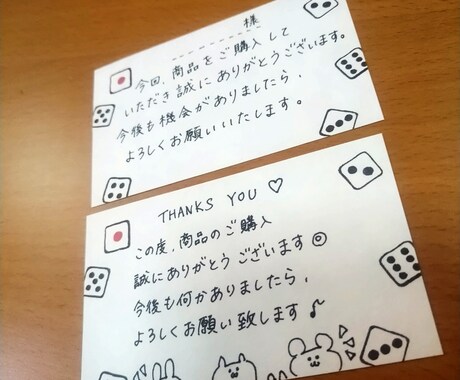 様
今回、商品をご購入して
いただき誠にありがとうございます。
今後も機会がありましたら、
よろしくお願いいたします。
THANKS YOU ♡
この度、商品のご購入
誠にありがとうございます◎
今後も何かありましたら、
よろしくお願い致します♪